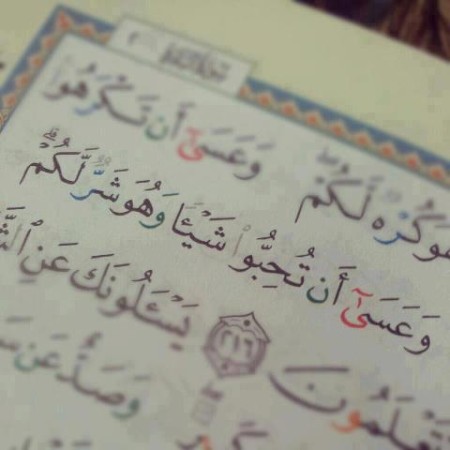 وَهُوَ كُرْهٌ لَّكُمْ ۖ وَعَسَىٰٓ أَن تَكْرَهُوا
وَعَسَىٰٓ أَن تُحِبُّوا۟ شَيْـًٔا وَهُوَ شَرٌّ لَّكُمْ ۗ
تَعْلَمُونَ ٢١٦ يَسْـَٔلُونَكَ عَنِ
وَصَدٌّ عَن